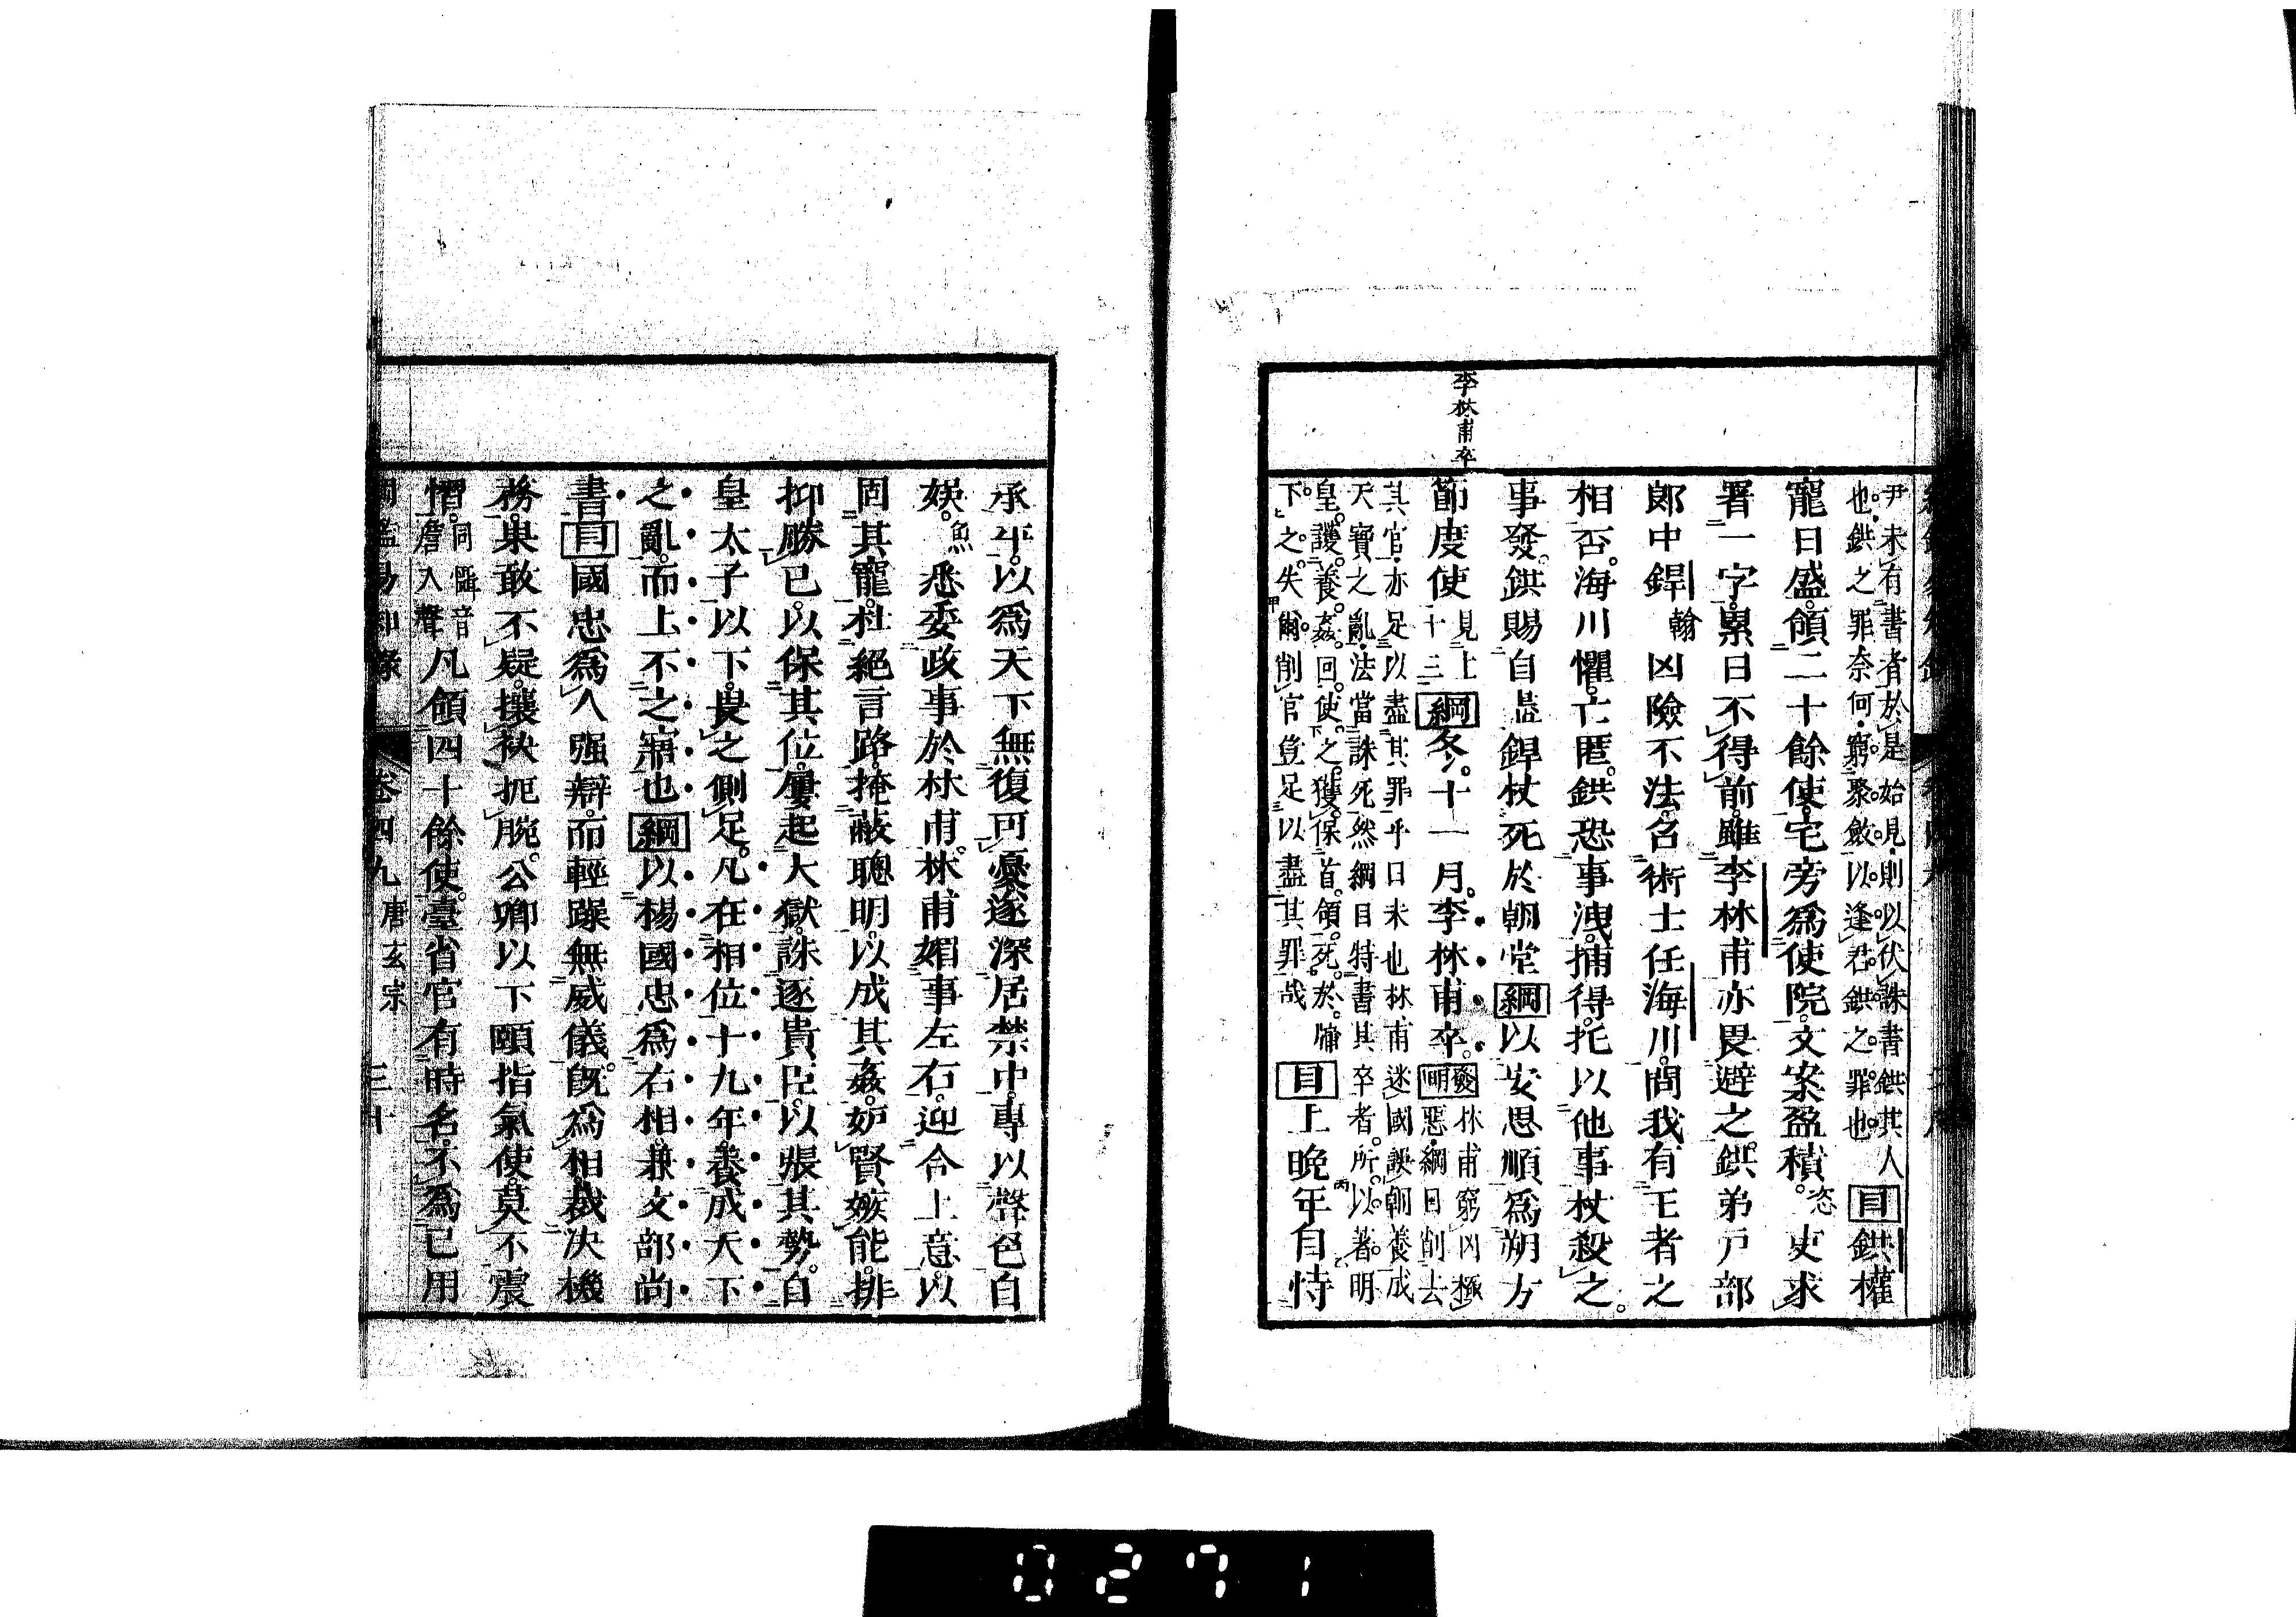 李林甫卒
尹未有書者於是始見則以伏誅書鉷其人
也鉷之罪奈何窮聚斂以逢君鉷之罪也
目鉷權
寵日盛領二十餘使宅旁爲使院文案盈積恣吏求
署一字累日不得前雖李林甫亦畏避之鉷弟戸部
郎中銲翰凶險不法召術士任海川問我有王者之
相否海川懼亡匿鉷恐事洩捕得托以他事杖殺之
事發鉷賜自盡銲杖死於朝堂綱以安思順爲朔方
節度使見上十三綱冬十一月李林甫卒發明林甫窮凶極惡綱目削去
其官亦足以盡其罪乎曰未也林甫迷國誤朝養成
天寶之亂法當誅死然綱目特書其卒者所以著明
皇護養姦回使之獲保首領死於牖
下之失爾削官豈足以盡其罪哉
目上晚年自恃
承平以爲天下無復可憂遂深居禁中專以聲色自
娛魚悉委政事於林甫林甫媚事左右迎合上意以
固其寵杜絕言路掩蔽聰明以成其姦妒賢嫉能排
抑勝已以保其位屢起大獄誅逐貴臣以張其勢自
皇太子以下畏之側足凡在相位十九年養成天下
之亂而上不之寤也綱以楊國忠爲右相兼文部尚
書目國忠爲人强辯而輕躁無威儀旣爲相裁決機
務果敢不疑攘袂扼腕公卿以下頤指氣使莫不震
慴同慴音詹入聲凡領四十餘使臺省官有時名不爲已用
綱鑑易知錄 卷四九 唐玄宗